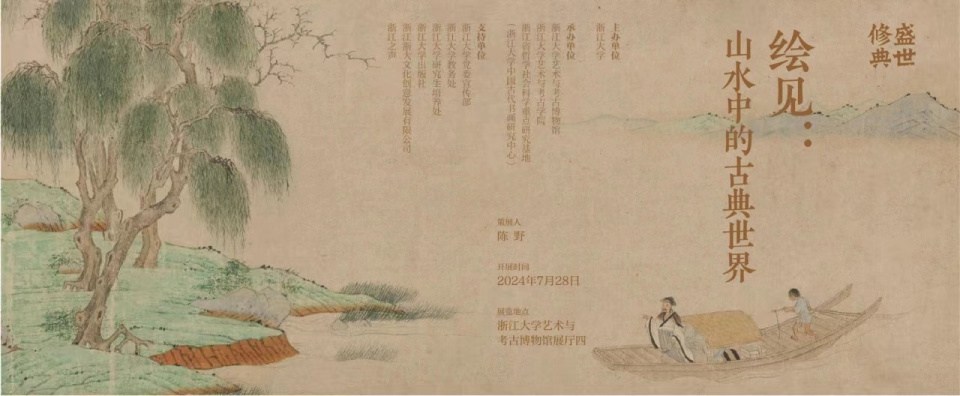 盛世
修典
绘见：
山水中的古典世界
主办单位
浙江大学
承办单位
浙江大学艺术与考古博物馆
浙江大学艺术与考古学院
浙江省哲学社会科学重点研究基地
（浙江大学中国古代书画研究中心）
支持单位
浙江大学党委宣传部
浙江大学教务处
浙江大学研究生培养处
浙江大学出版社
浙江浙大文化创意发展有限公司
浙江之声
策展人
陈 野
开展时间
2024年7月28日
展览地点
浙江大学艺术与
考古博物馆展厅四